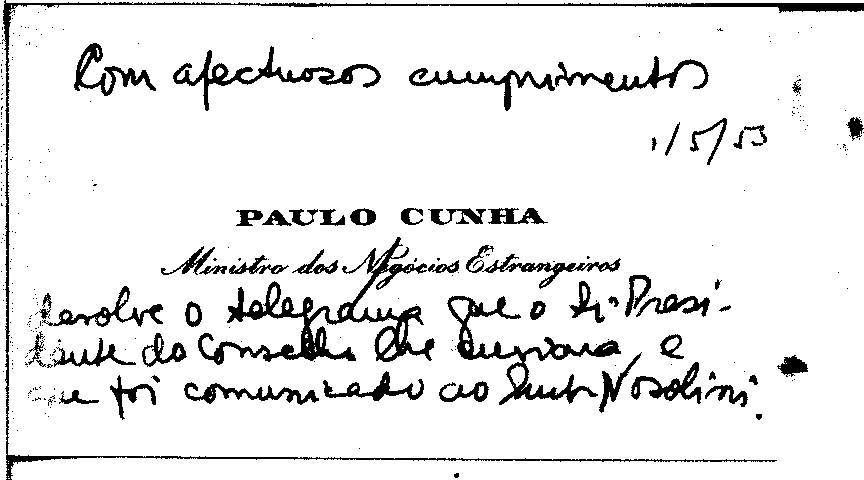 Com afectuosos cumprimentos
1/5/53
PAULO CUNHA
Ministro dos Negócios Estrangeiros
devolve o telegrama que o Sr. Presi-
dente do Conselho lhe enviara, e
que foi comunicado ao Nosolini.